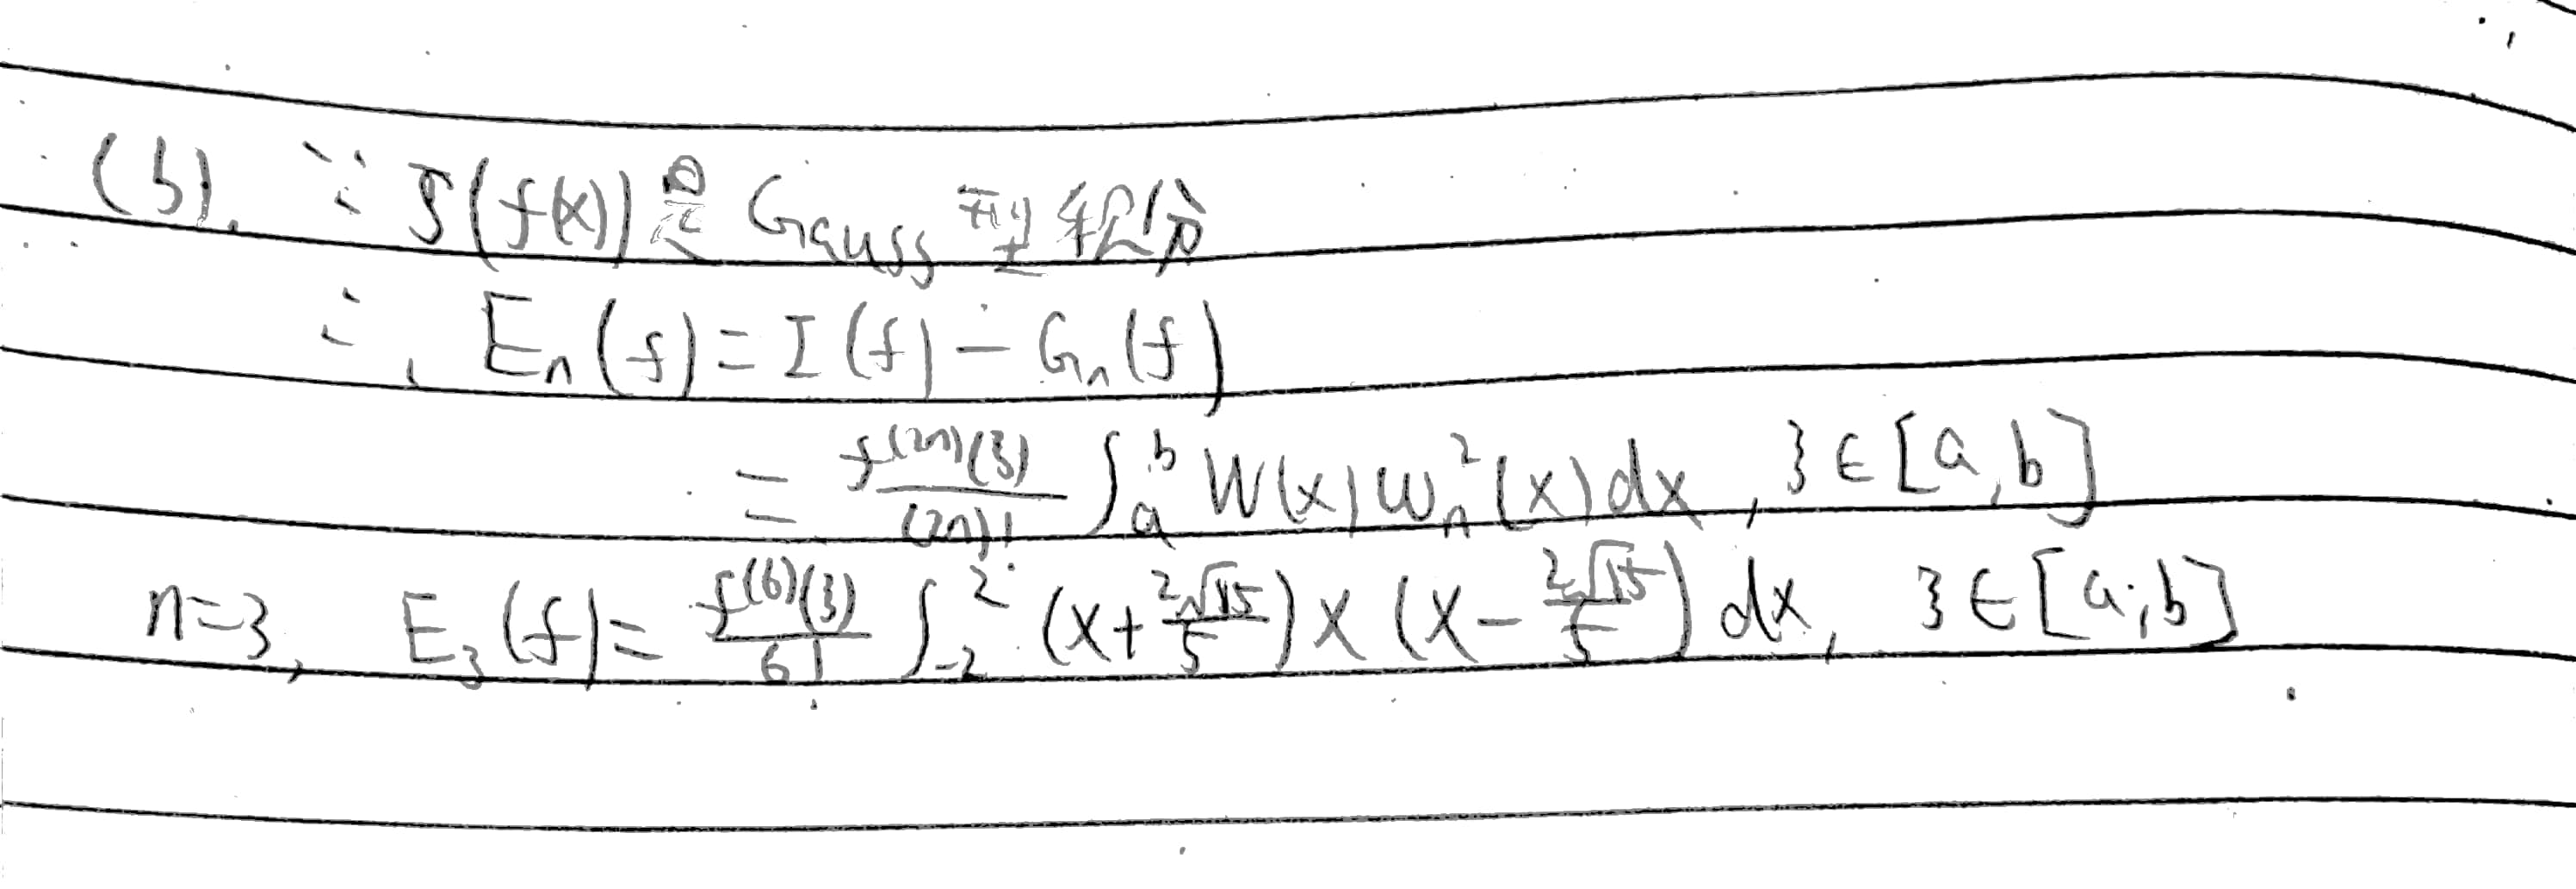 (b). ∵ I(f(x))是Gauss型积分
∴ Eₙ(f) = I(f) − Gₙ(f)
= f⁽²ⁿ⁾(ξ)/(2n)! ∫ₐᵇ W(x)ωₙ²(x)dx, ξ∈[a,b]
n=3, E₃(f) = f⁽⁶⁾(ξ)/6! ∫₋₂² (x+2√15/5)x(x−2√15/5)dx, ξ∈[a,b]